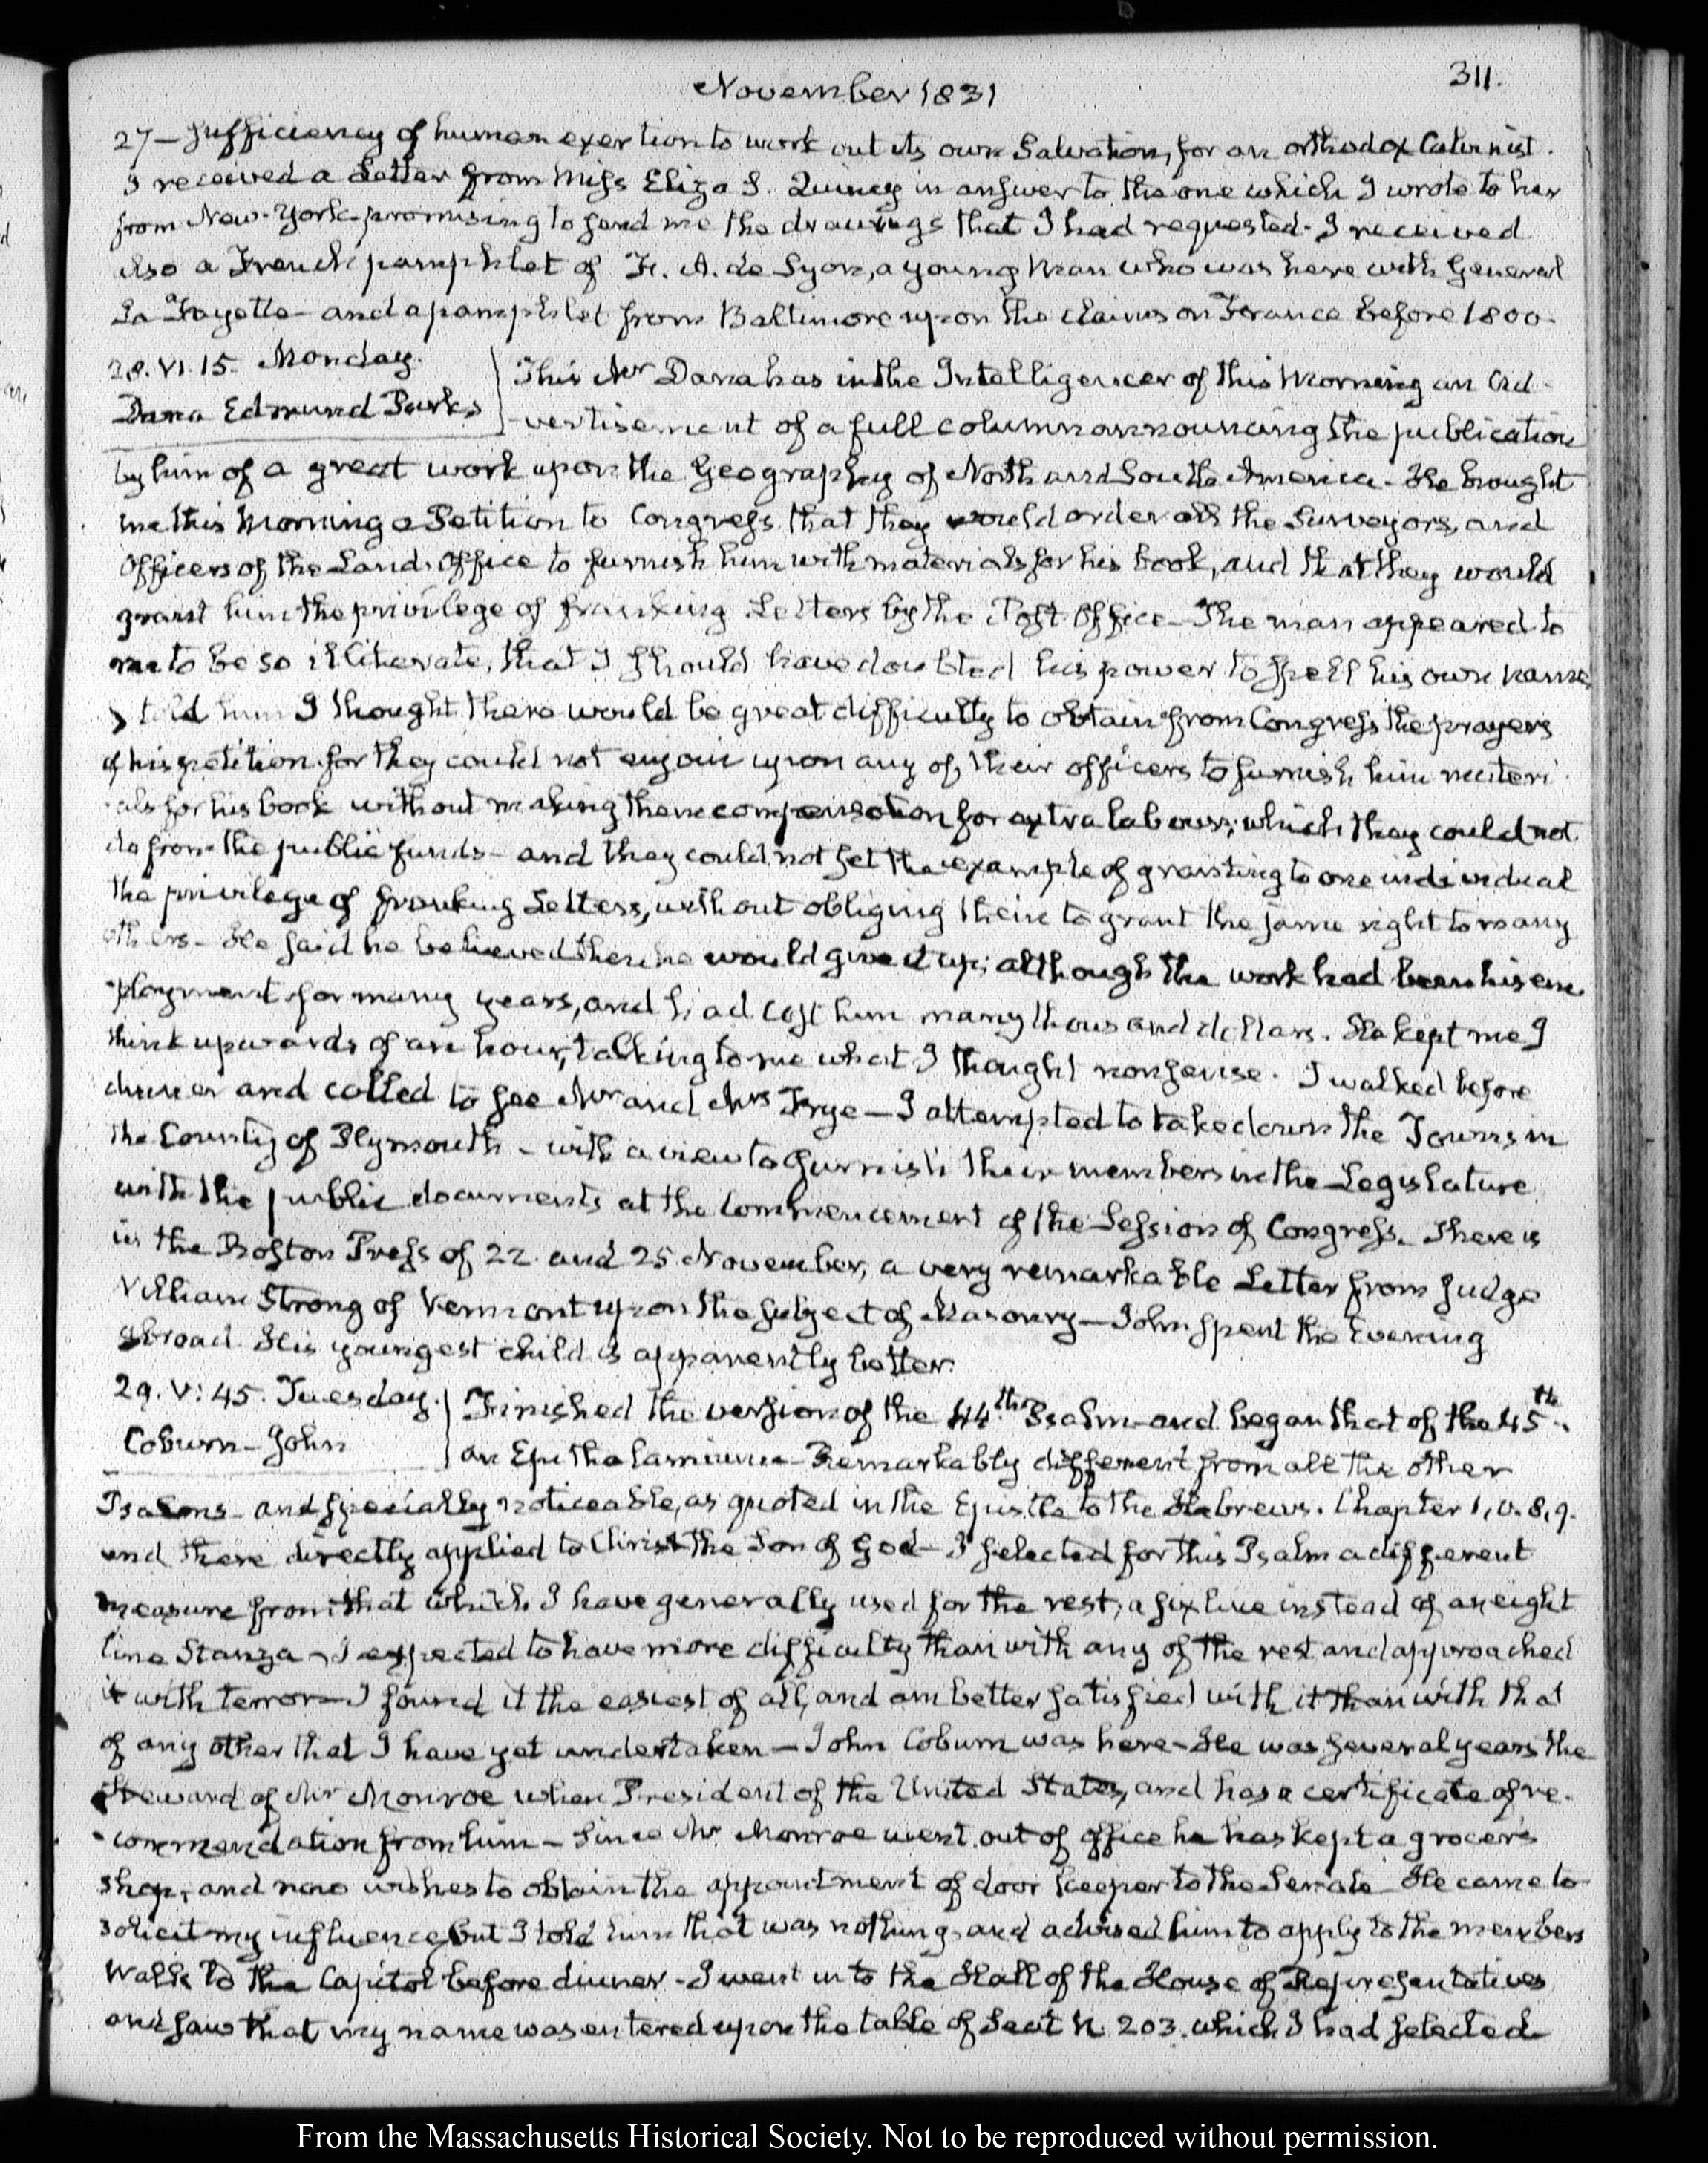 November 1831
311.
27 — sufficiency of human exertion to work out its own Salvation, for an orthodox Calvinist.
I received a Letter from Miss Eliza S. Quincy in answer to the one which I wrote to her
from New-York promising to send me the drawings that I had requested. I received
also a French pamphlet of A. de Syon, a young man who was here with General
La Fayette — and a pamphlet from Baltimore upon the claims on France before 1800.
28. VI. 15. Monday.
Dana Edmund Parks
This Mr Dana has in the Intelligencer of this Morning an Ad-
-vertisement of a full column announcing the publication
by him of a great work upon the Geography of North and South America. He brought
me this Morning a Petition to Congress that they would order all the Surveyors, and
Officers of the Land-Office to furnish him with materials for his book, and that they would
grant him the privilege of franking Letters by the Post Office — The man appeared to
me to be so illiterate, that I should have doubted his power to spell his own name
I told him I thought there would be great difficulty to obtain from Congress the prayers
of his petition for they could not enjoin upon any of their officers to furnish him materi-
-als for his book without making them compensation for extra labour; which they could not
do from the public funds — and they could not set the example of granting to one individual
the privilege of franking Letters, without obliging them to grant the same right to many
others — He said he believed then he would give it up; although the work had been his em-
-ployment for many years, and had cost him many thousand dollars. He kept me I
think upwards of an hour, talking to me what I thought nonsense. I walked before
dinner and called to see Mr and Mrs Frye — I attempted to take down the Towns in
the County of Plymouth — with a view to furnish their members in the Legislature
with the public documents at the Commencement of the Session of Congress. There is
in the Boston Press of 22. and 25. November, a very remarkable Letter from Judge
William Strong of Vermont upon the subject of Masonry — John spent the Evening
abroad. His youngest child is apparently better.
29. V: 45. Tuesday.
Coburn — John
Finished the version of the 44th Psalm and began that of the 45th.
an Epithalamium — Remarkably different from all the other
Psalms — and specially noticeable, as quoted in the Epistle to the Hebrews. Chapter 1, v. 8, 9.
and there directly applied to Christ the Son of God — I selected for this Psalm a different
measure from that which I have generally used for the rest, a six line instead of an eight
line Stanza — I expected to have more difficulty than with any of the rest and approached
it with terror — I found it the easiest of all, and am better satisfied with it than with that
of any other that I have yet undertaken — John Coburn was here — He was several years the
Steward of Mr Monroe when President of the United States, and has a certificate of re-
-commendation from him — Since Mr Monroe went out of office he has kept a grocer's
shop, and now wishes to obtain the appointment of door keeper to the Senate — He came to
solicit my influence, but I told him that was nothing and advised him to apply to the members
Walk to the Capitol before dinner — I went in to the Hall of the House of Representatives
and saw that my name was entered upon the table of Seat N. 203. which I had selected
From the Massachusetts Historical Society. Not to be reproduced without permission.